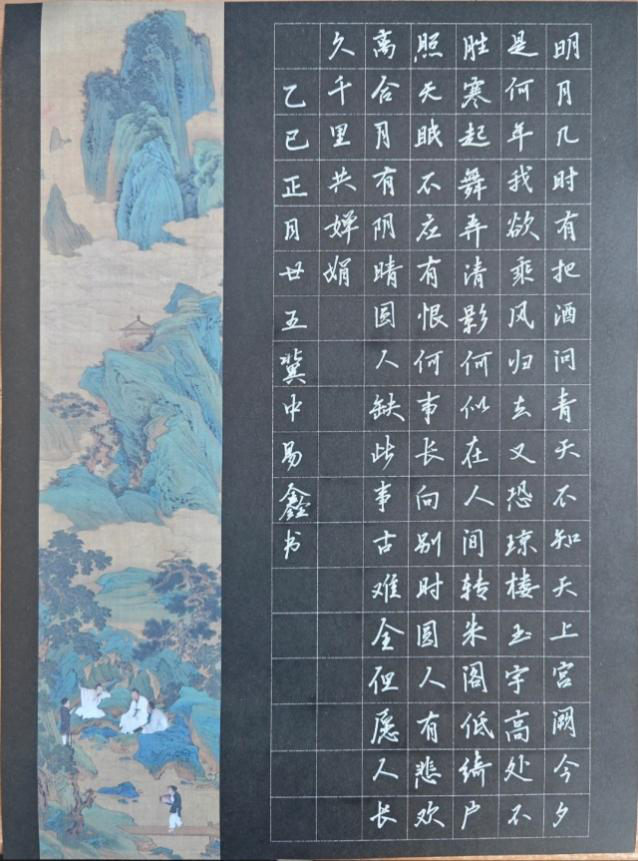 明月几时有把酒问青天不知天上宫阙今夕
是何年我欲乘风归去又恐琼楼玉宇高处不
胜寒起舞弄清影何似在人间转朱阁低绮户
照无眠不应有恨何事长向别时圆人有悲欢
离合月有阴晴圆人缺此事古难全但愿人长
久千里共婵娟
乙巳正月廿五冀中易鑫书